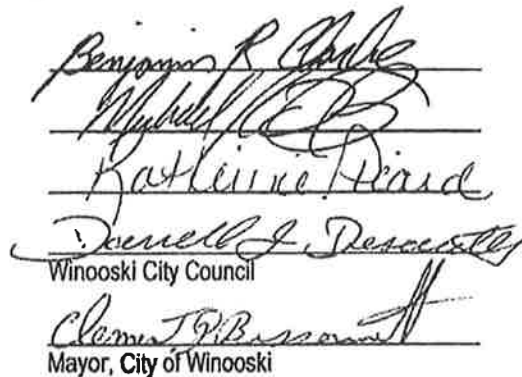 Benjamin R Clarke
Michael
Katherine Picard
Darrell J. Desautels
Winooski City Council
Clement J. Bissonnett
Mayor, City of Winooski